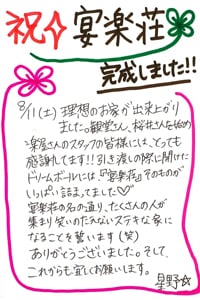 祝 宴楽荘
完成しました!!
8/11(土) 理想のお家が出来上がり
ました。観堂さん、桜井さんを始め
楽居さんのスタッフの皆様には、とっても
感謝してます!! 引き渡しの際に開けた
ドリームボールには、『宴楽荘』そのものが
いっぱい詰まってました♡
宴楽荘の名の通り、たくさんの人が
集まり笑いのたえないステキな家に
なることを誓います(笑)
ありがとうございました。そして、
これからも宜しくお願いします。
星野☆